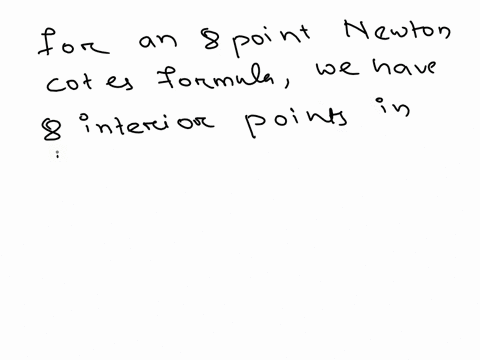 for an 8 point Newton
cotes formula, we have
8 interior points in